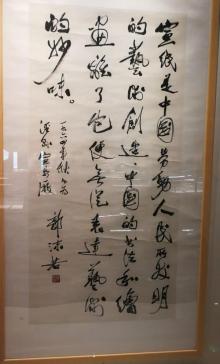 宣纸是中国劳动人民所发明
的艺术创造，中国的书法和绘
画离了它便无从表达艺术
的妙味。
一九六四年
郭沫若